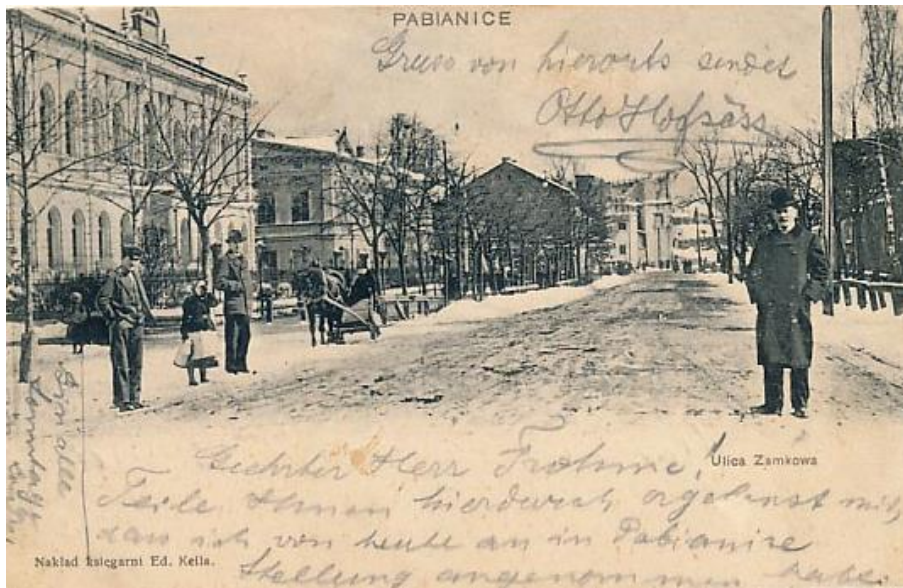 PABIANICE
Gruss von hierorts sendet
Otto Hofsäss
Ulica Zamkowa
Geehrter Herr Frohme!
Teile Ihnen hierdurch ergebenst mit,
dass ich von heute an in Pabianice
Stellung angenommen habe.
Nakład księgarni Ed. Keila.